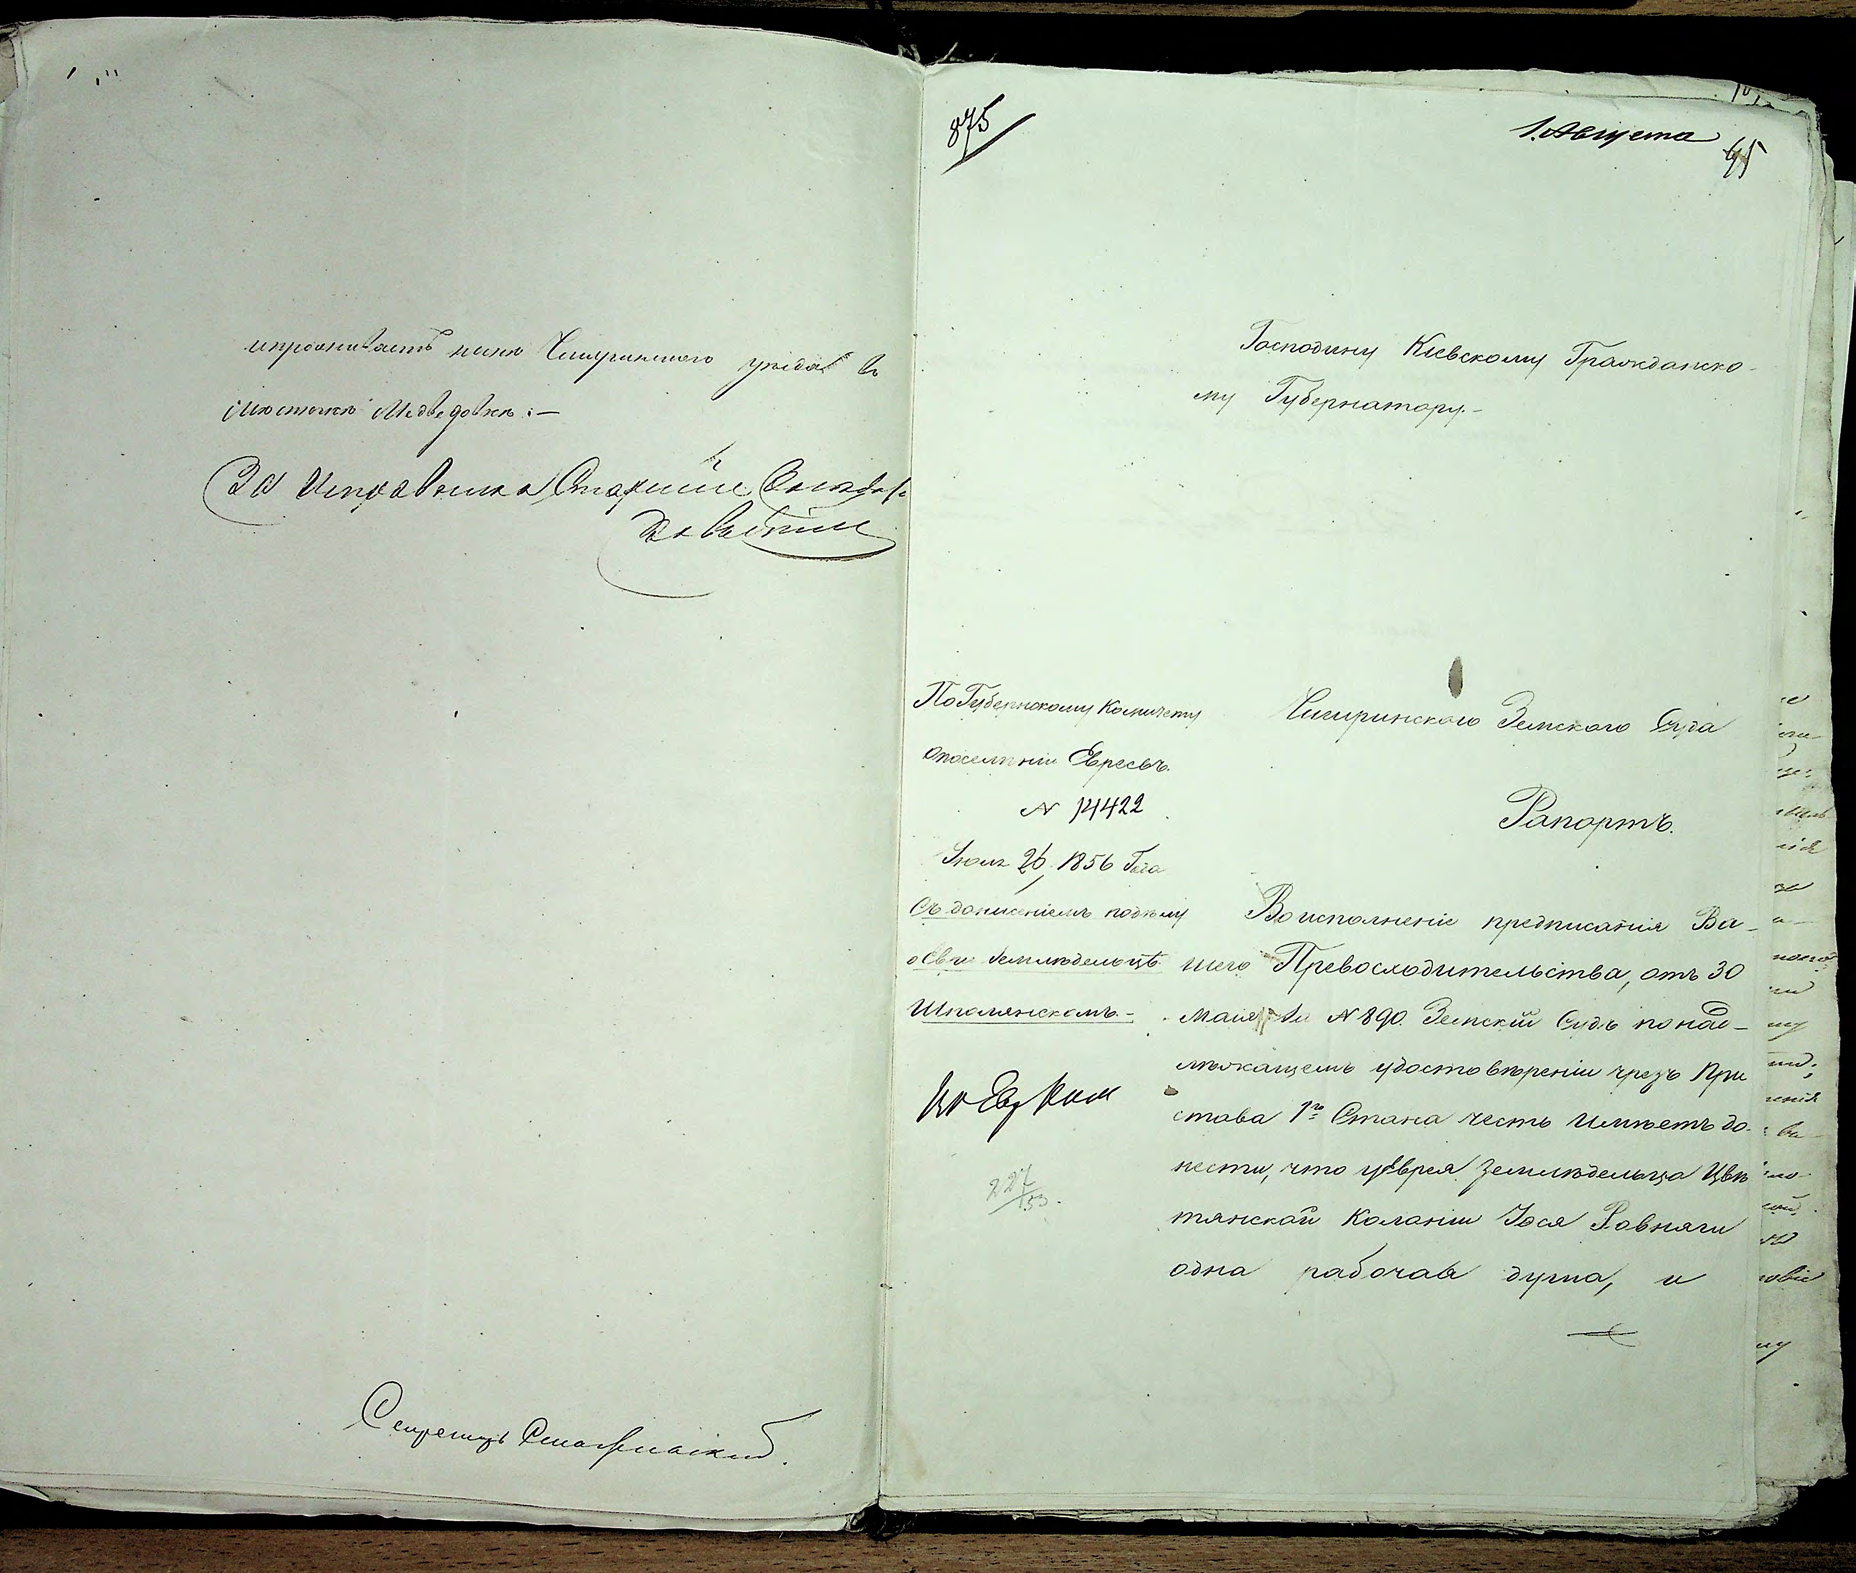 и проживаетъ нынѣ Чигиринского уѣзда въ
мѣстечкѣ Медведовкѣ:—
За Исправника Старшій
Секретарь
875
1. Августа
45
Господину Кіевскому Гражданско-
му Губернатору.-
По Губернскому Комитету
о поселеніи Евреевъ.
N 14422
Іюля 26, 1856 Года
Съ донесеніемъ по дѣлу
о Евреѣ Земледельцѣ
Шполянскомъ.-
по Евр Ком
227/53.
Чигиринского Земского Суда
Рапортъ.
Во исполненіе предписанія Ва-
шего Превосходительства, отъ 30
Маія за N 890. Земскій Судъ по над-
лѣжащемъ удостовѣреніи чрезъ При
става 1го Стана честь имѣетъ до-
нести, что у Еврея земледѣльца Цвѣ
тянской Колоніи Іося Ровняги
одна рабочая душа, и